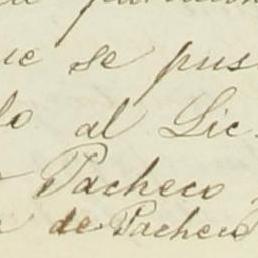 ue se pus
lo al Lic.
Pacheco
de Pacheco